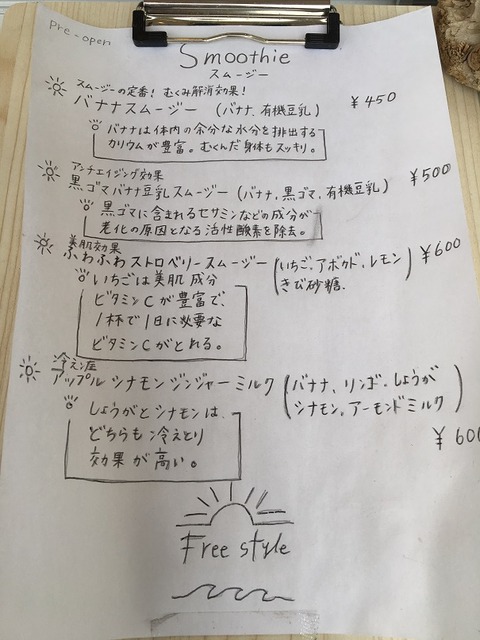 pre-open
Smoothie
スムージー
スムージーの定番! むくみ解消効果!
バナナスムージー (バナナ、有機豆乳) ¥450
バナナは体内の余分な水分を排出する
カリウムが豊富。むくんだ身体もスッキリ。
アンチエイジング効果
黒ゴマバナナ豆乳スムージー (バナナ、黒ゴマ、有機豆乳) ¥500
黒ゴマに含まれるセサミンなどの成分が
老化の原因となる活性酸素を除去。
美肌効果
ふわふわストロベリースムージー (いちご、アボカド、レモン ¥600
きび砂糖.)
いちごは美肌成分
ビタミンCが豊富で、
1杯で1日に必要な
ビタミンCがとれる。
冷え症
アップルシナモンジンジャーミルク (バナナ、リンゴ、しょうが
シナモン、アーモンドミルク)
¥600
しょうがとシナモンは、
どちらも冷えとり
効果が高い。
Free style